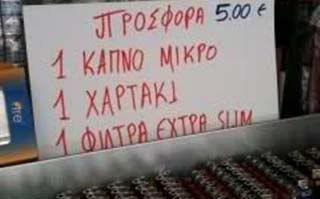 ΠΡΟΣΦΟΡΑ 5.00 €
1 ΚΑΠΝΟ ΜΙΚΡΟ
1 ΧΑΡΤΑΚΙ
1 ΦΙΛΤΡΑ EXTRA SLIM